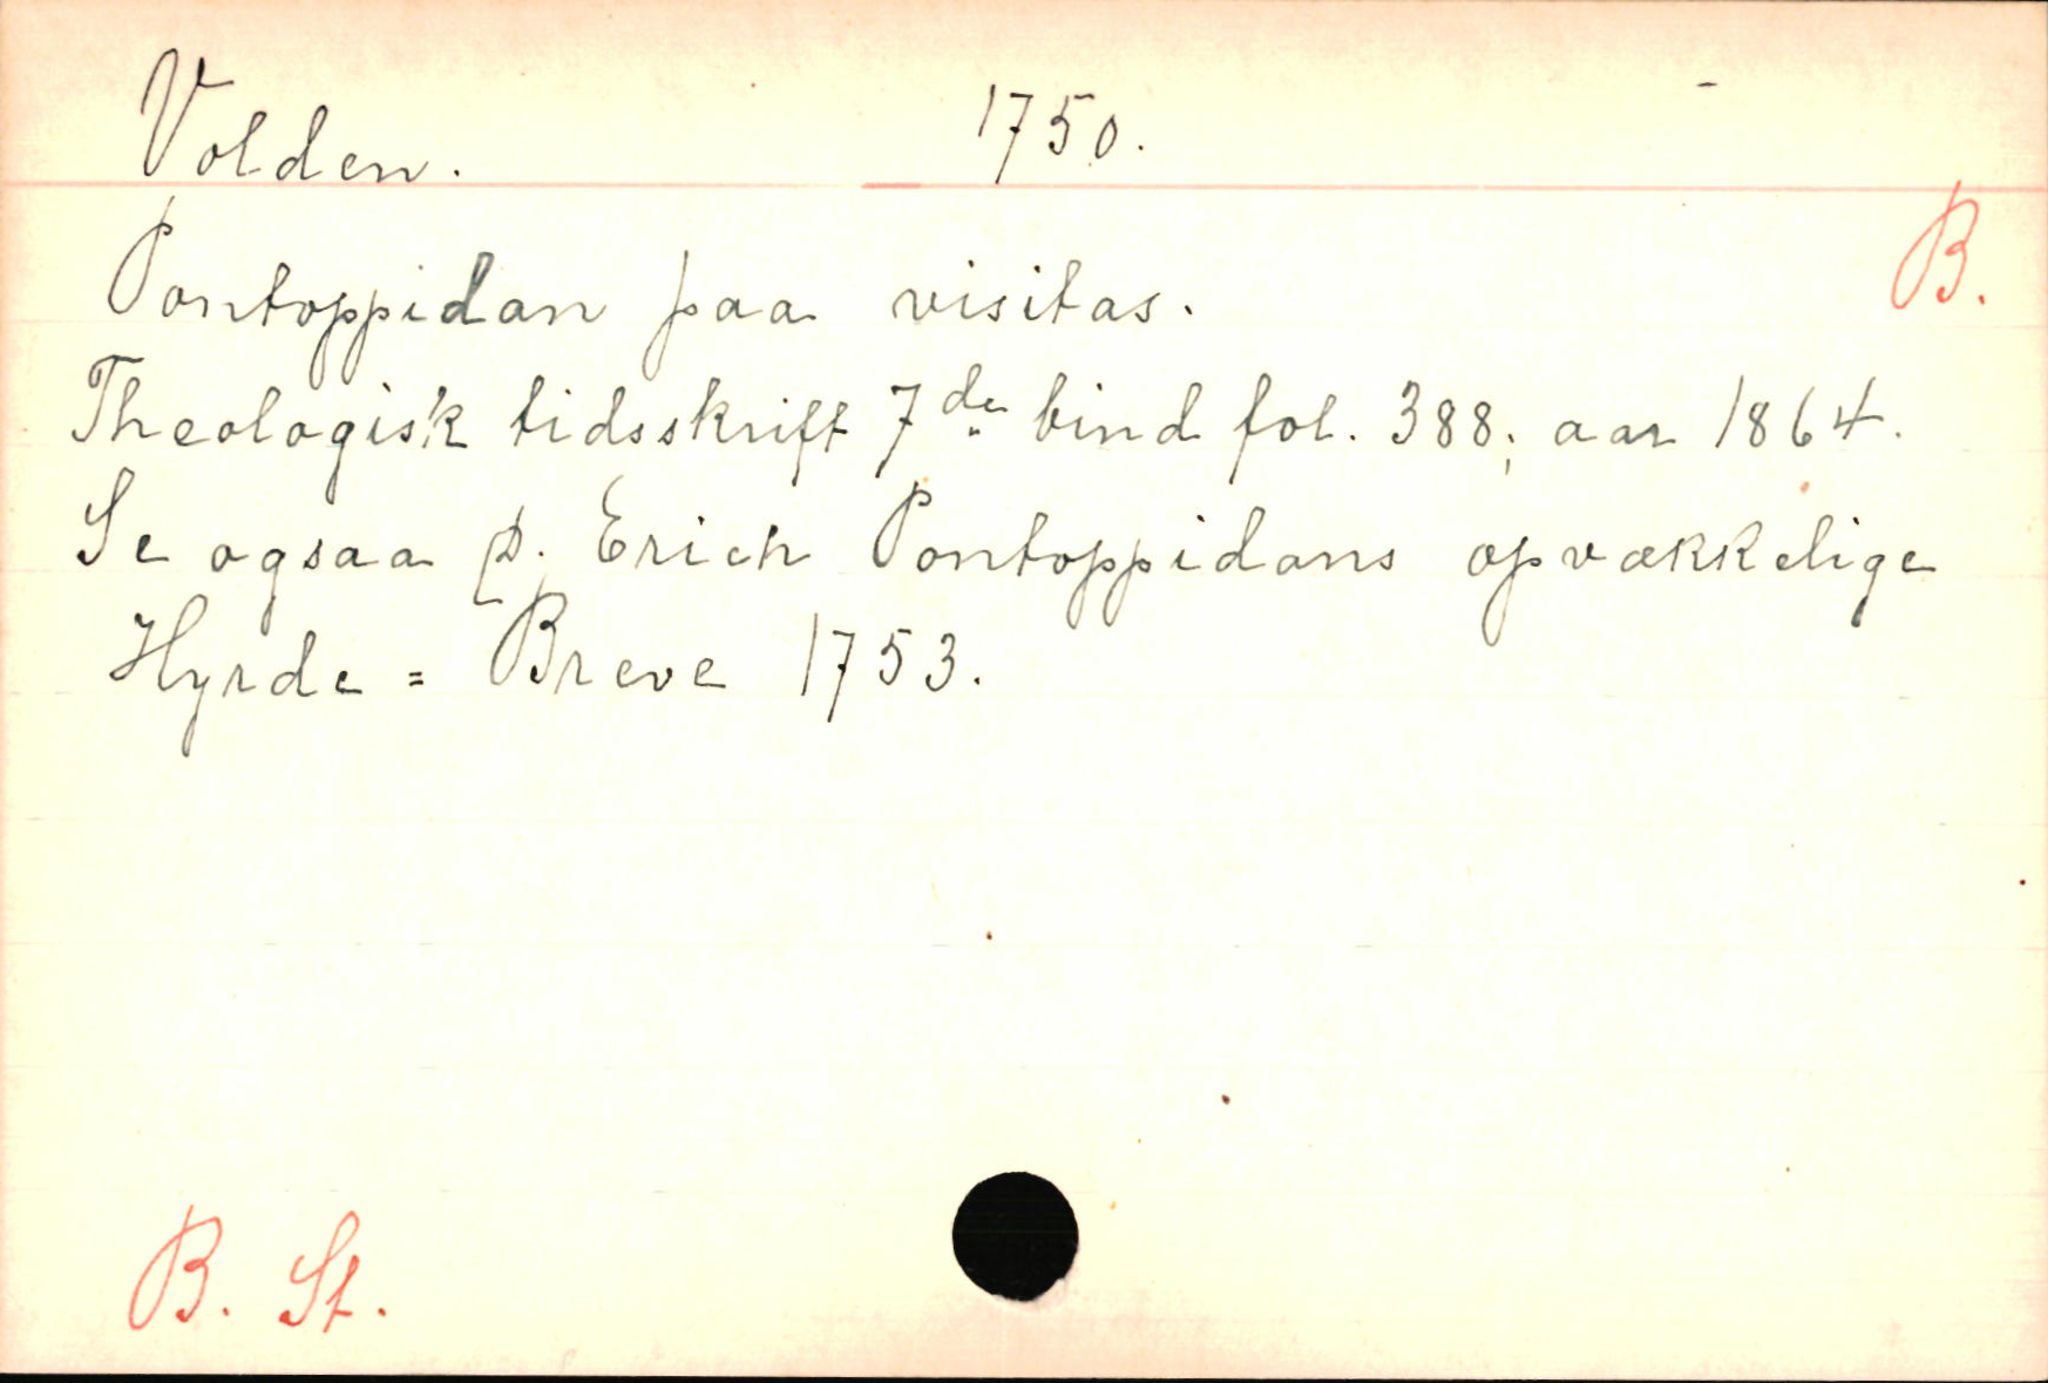 Volden. 1750.
B.
Pontoppidan paa visitas.
Theologisk tidsskrift 7de bind fol. 388; aar 1864.
Se ogsaa D. Erich Pontoppidans opvækkelige
Hyrde = Breve 1753.
B. St.